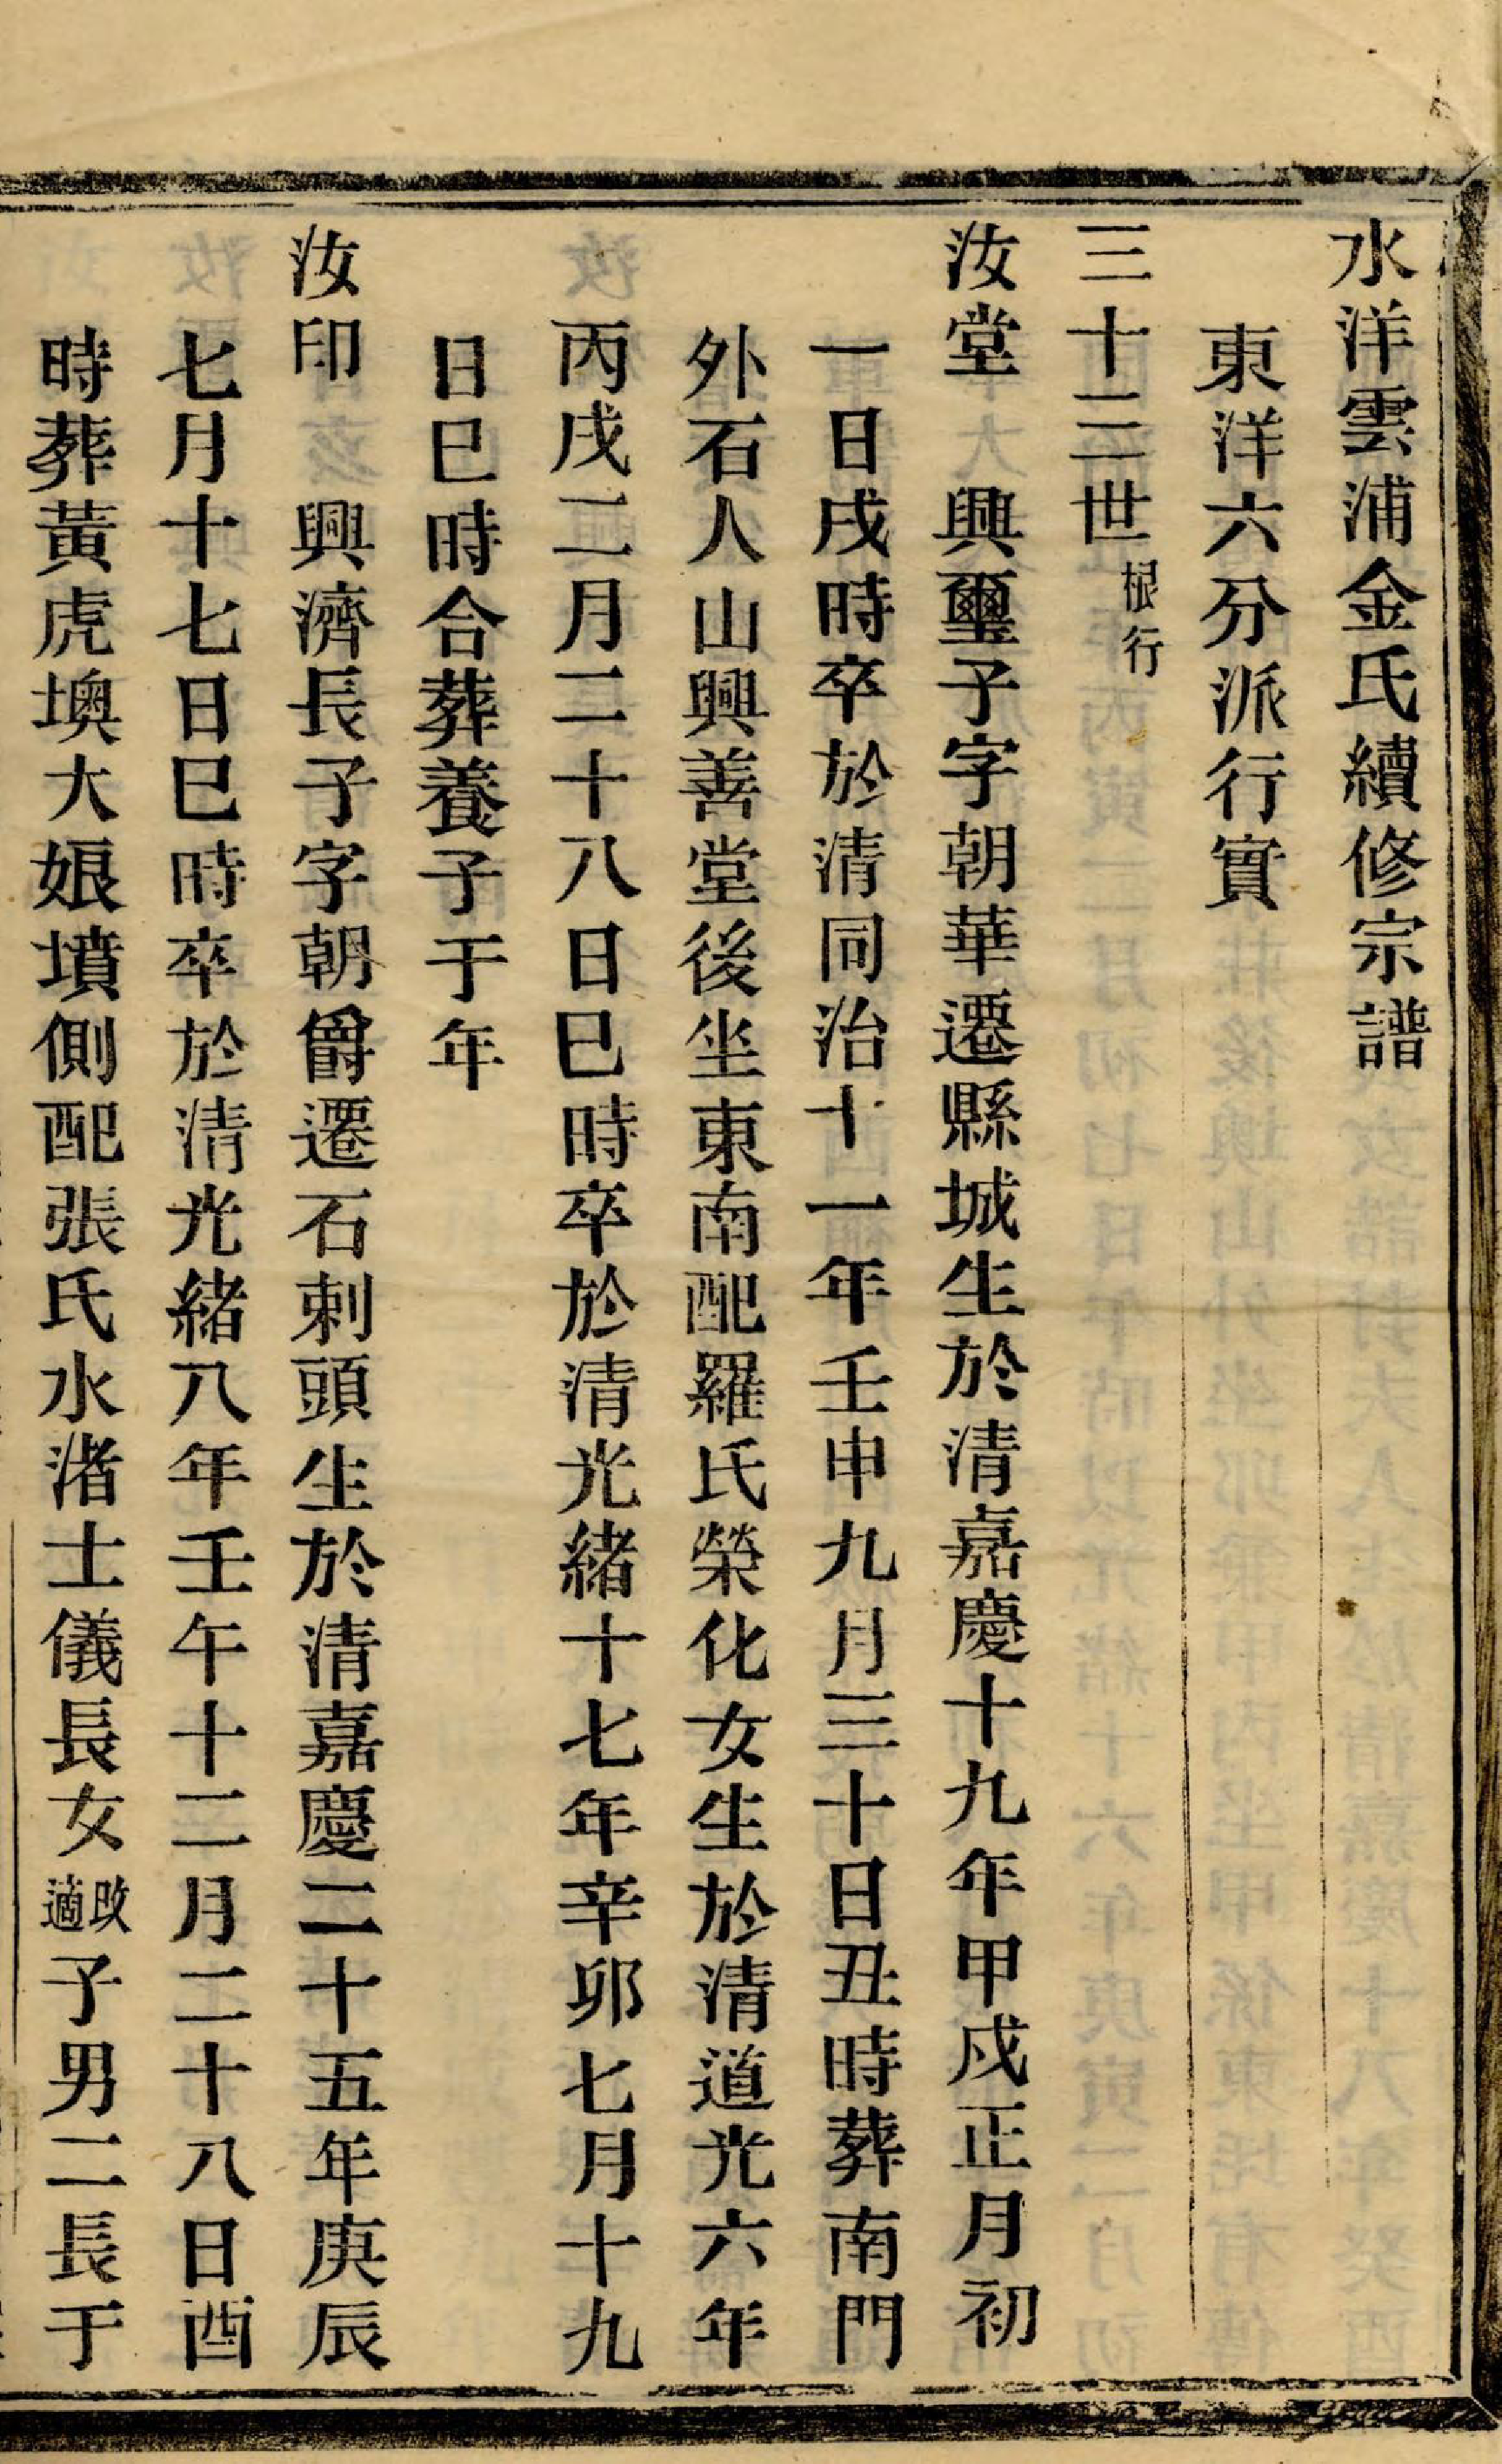 水洋雲浦金氏續修宗譜
東洋六分派行實
三十三世根行
汝堂　興璽子字朝華遷縣城生於清嘉慶十九年甲戌正月初
一日戌時卒於清同治十一年壬申九月三十日丑時葬南門
外石人山興善堂後坐東南配羅氏榮化女生於清道光六年
丙戌二月二十八日巳時卒於清光緒十七年辛卯七月十九
日巳時合葬養子于年
汝印　興濟長子字朝爵遷石刺頭生於清嘉慶二十五年庚辰
七月十七日巳時卒於清光緒八年壬午十二月二十八日酉
時葬黃虎墺大娘墳側配張氏水渚士儀長女改適子男二長于